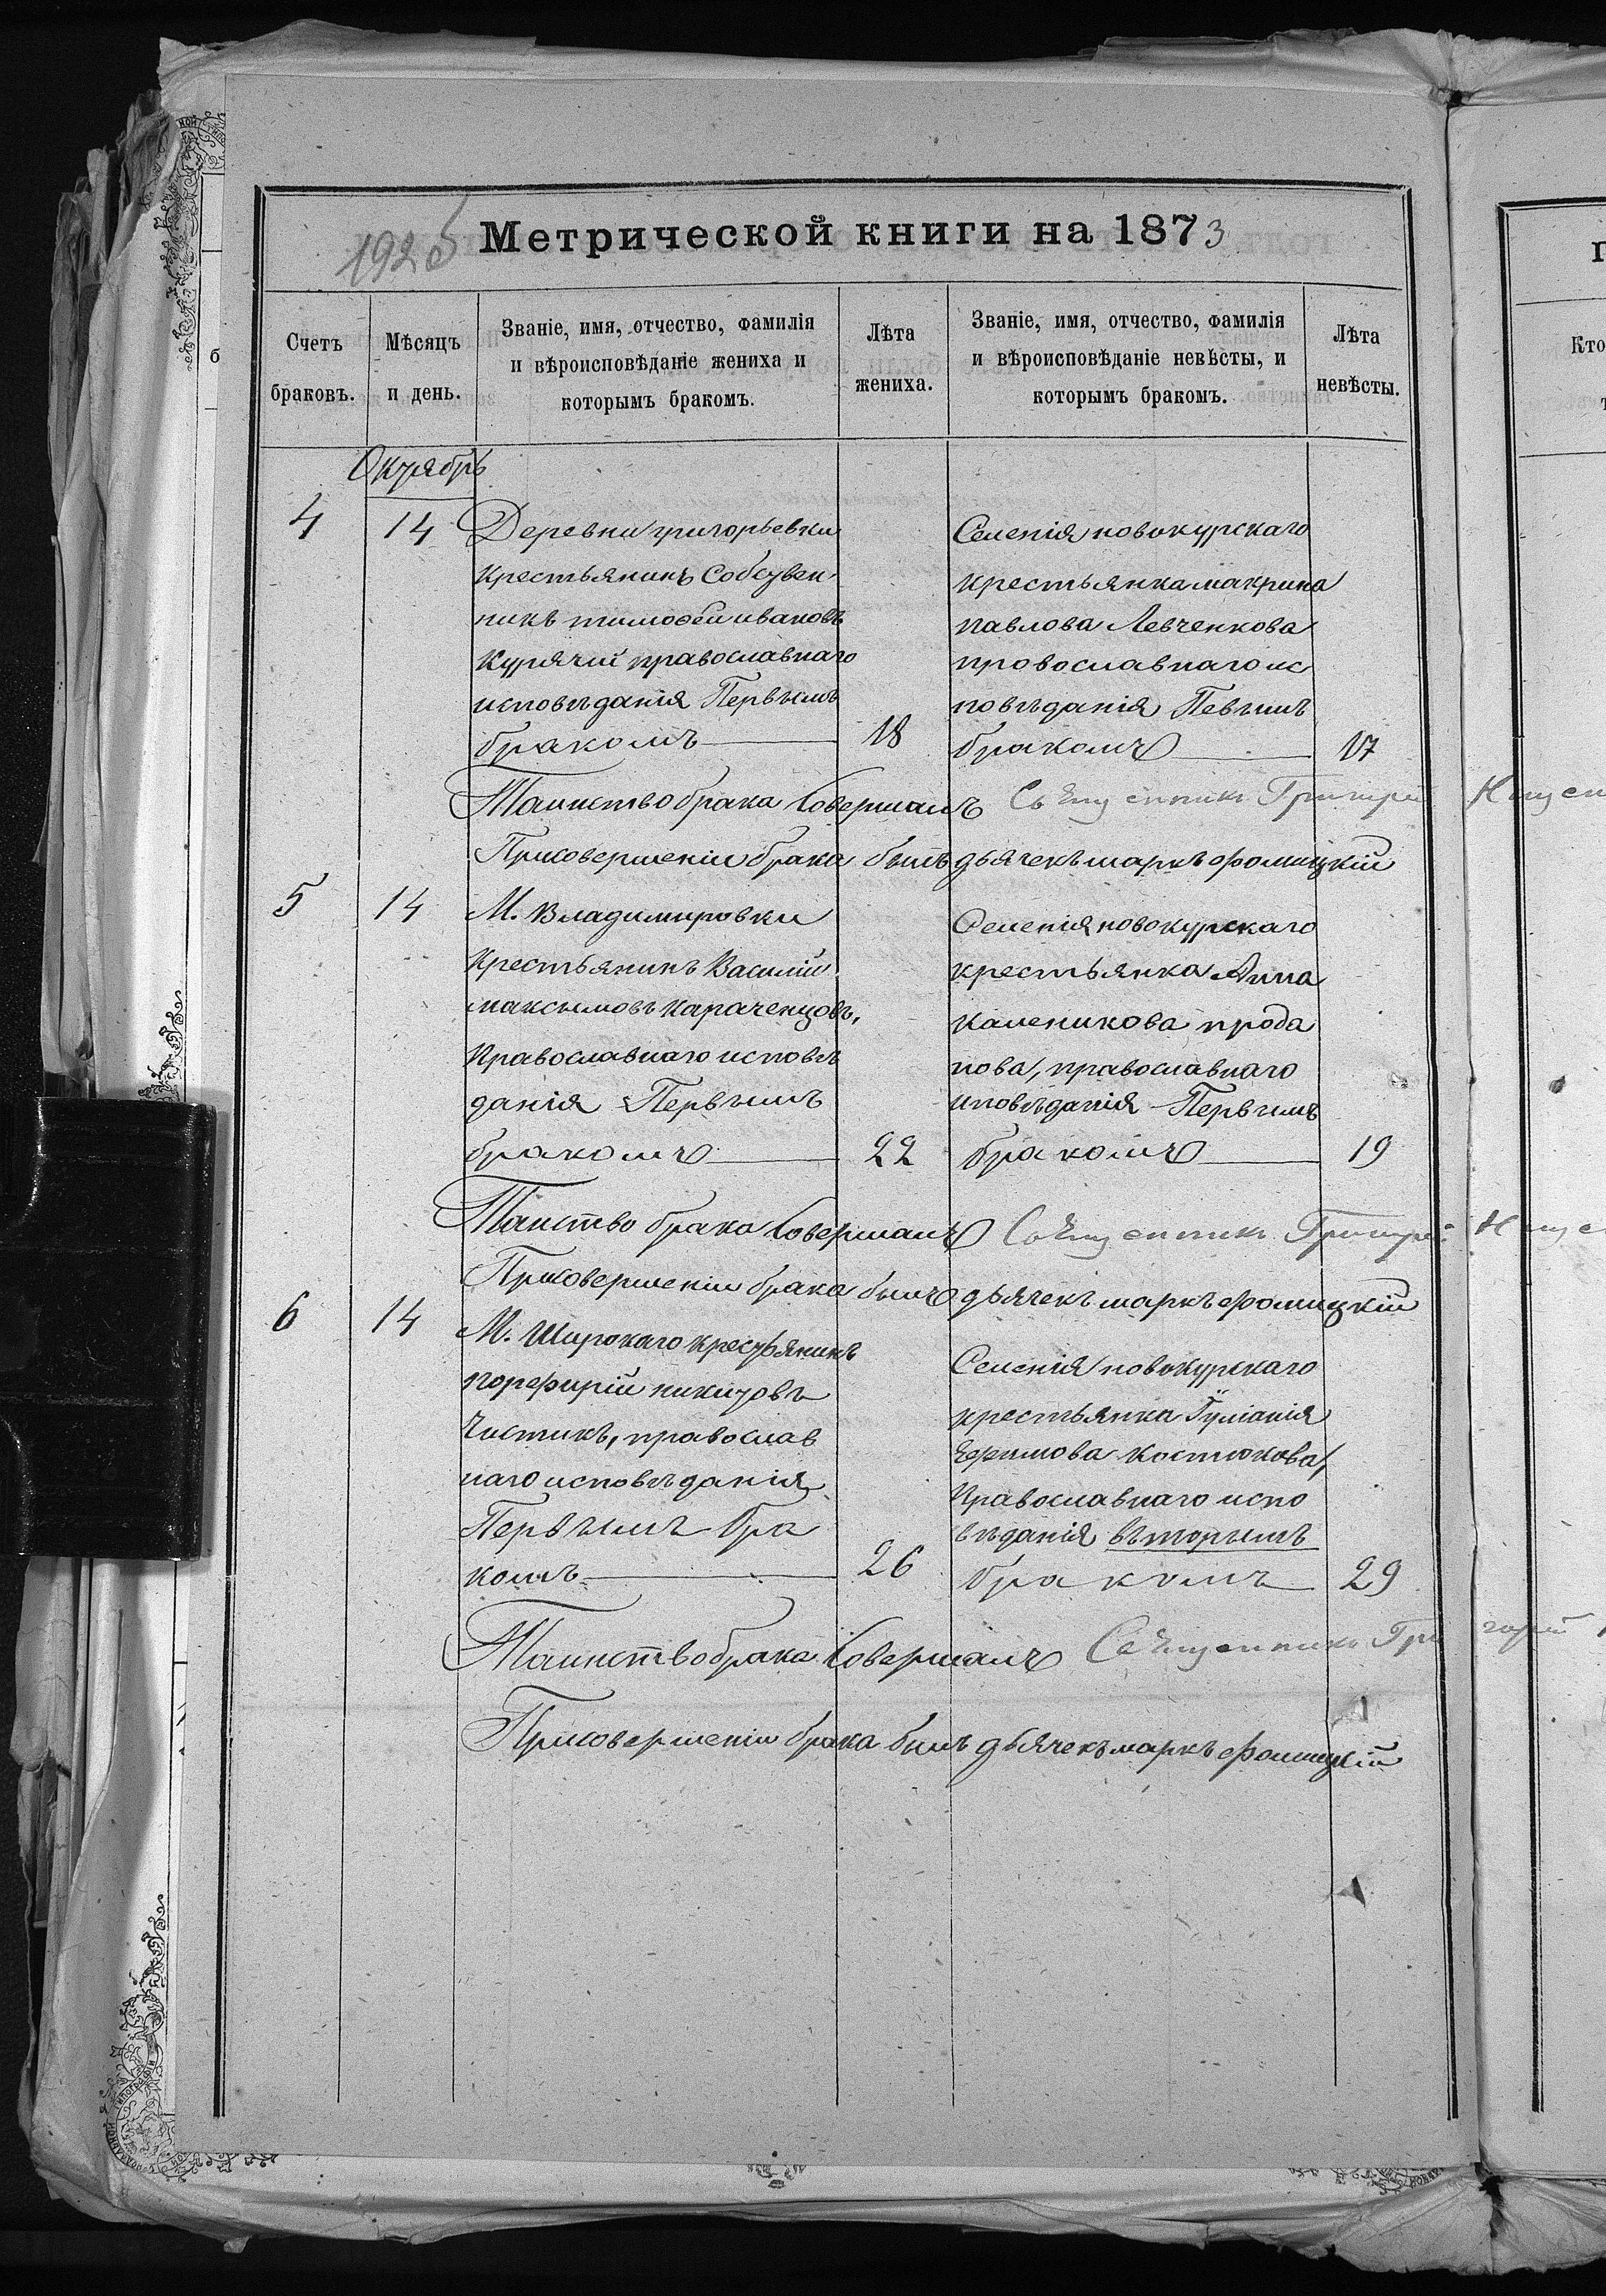 192б
Метрической книги на 1873
Счетъ браковъ.
Мѣсяцъ и день.
Званіе, имя, отчество, фамилія
и вѣроисповѣданіе жениха и
которымъ бракомъ.
Лѣта
жениха.
Званіе, имя, отчество, фамилія
и вѣроисповѣданіе невѣсты, и
которымъ бракомъ.
Лѣта
невѣсты.
Кто
Октябрь
4 14
Деревни григорьевки
крестьянинъ Собствен
никъ тимоѳей ивановъ
Курячій православнаго
исповѣданія Первымъ
бракомъ 18
Селенія новокурскаго
крестьянка макрина
павлова Левченкова
провославнаго ис
повѣданія Певымъ
бракомъ 17
Таинство брака Совершалъ Священникъ Григорій
Присовершеніи брака былъ дьячекъ маркъ фомицкій
5 14
М. Владимировки
Крестьянинъ Василій
максимовъ караченцовъ,
Православнаго исповѣ
данія Первымъ
бракомъ 22
Селенія новокурскаго
крестьянка Анна
каленикова прода
нова, православнаго
иповѣданія Первымъ
бракомъ 19
Таиство брака Совершалъ Священникъ Григорій
Присовершеніи брака былъ дьячекъ маркъ фомицкій
6 14
М. Широкаго крестьянинъ
порфирій никитовъ
Чистикъ, православ
наго исповѣданія
Первымъ бра
комъ 26
Селенія новокурскаго
крестьянка Гуліанія
Ефимова костюкова,
Православнаго испо
вѣданія въторымъ
бракомъ 29
Таинство брака Совершалъ Священникъ Григорій
Присовершеніи брака былъ дьячекъ маркъ фомицкій